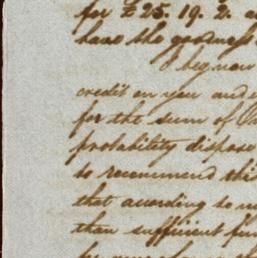 for £25. 19. 2. a
have the goodness
I beg now
credit on you and
for the sum of
probability dispose
to recommend thi
that according to
than sufficient fun